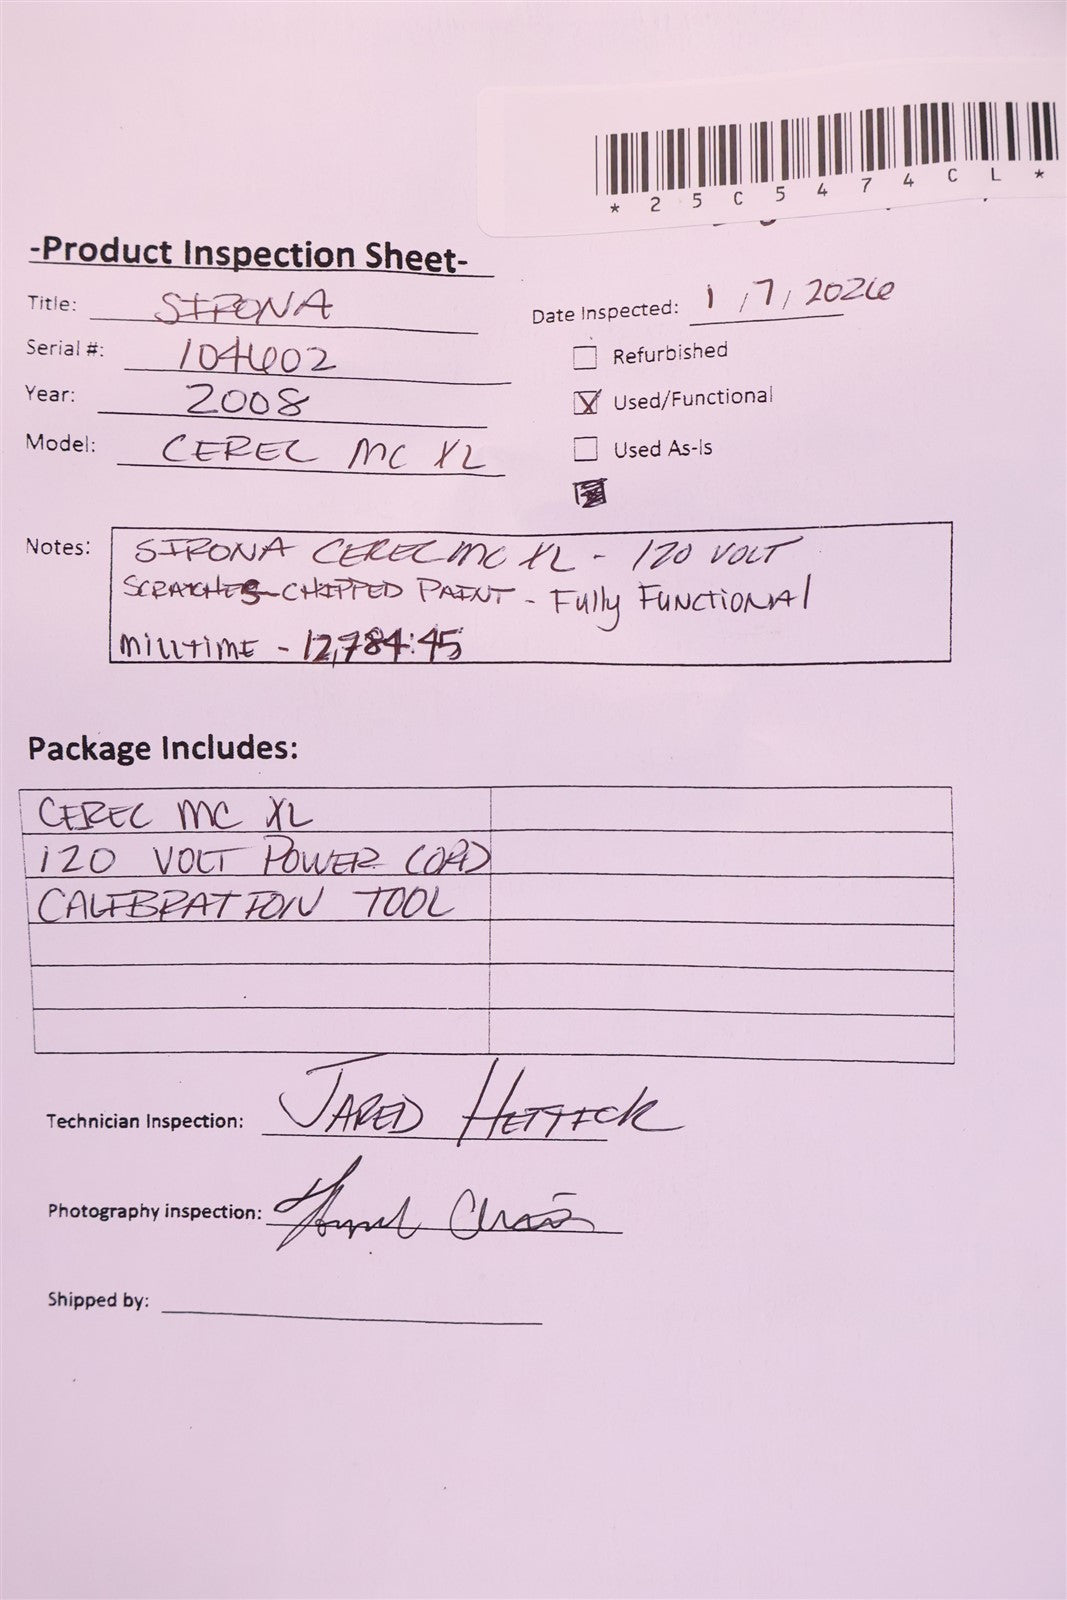 *25C5474CL*
-Product Inspection Sheet-
Title: SIRONA
Date Inspected: 1/7/2026
Serial #: 104602
Refurbished
Year: 2008
Used/Functional
Model: CEREC MC XL
Used As-Is
Notes: SIRONA CEREC MC XL - 120 VOLT
SCRATCHES-CHIPPED PAINT - Fully FUNCTIONAl
MILLTIME - 12,784:45
Package Includes:
CEREC MC XL
120 VOLT POWER CORD
CALIBRATION TOOL
Technician Inspection: JARED HETTICK
Photography inspection:
Shipped by: